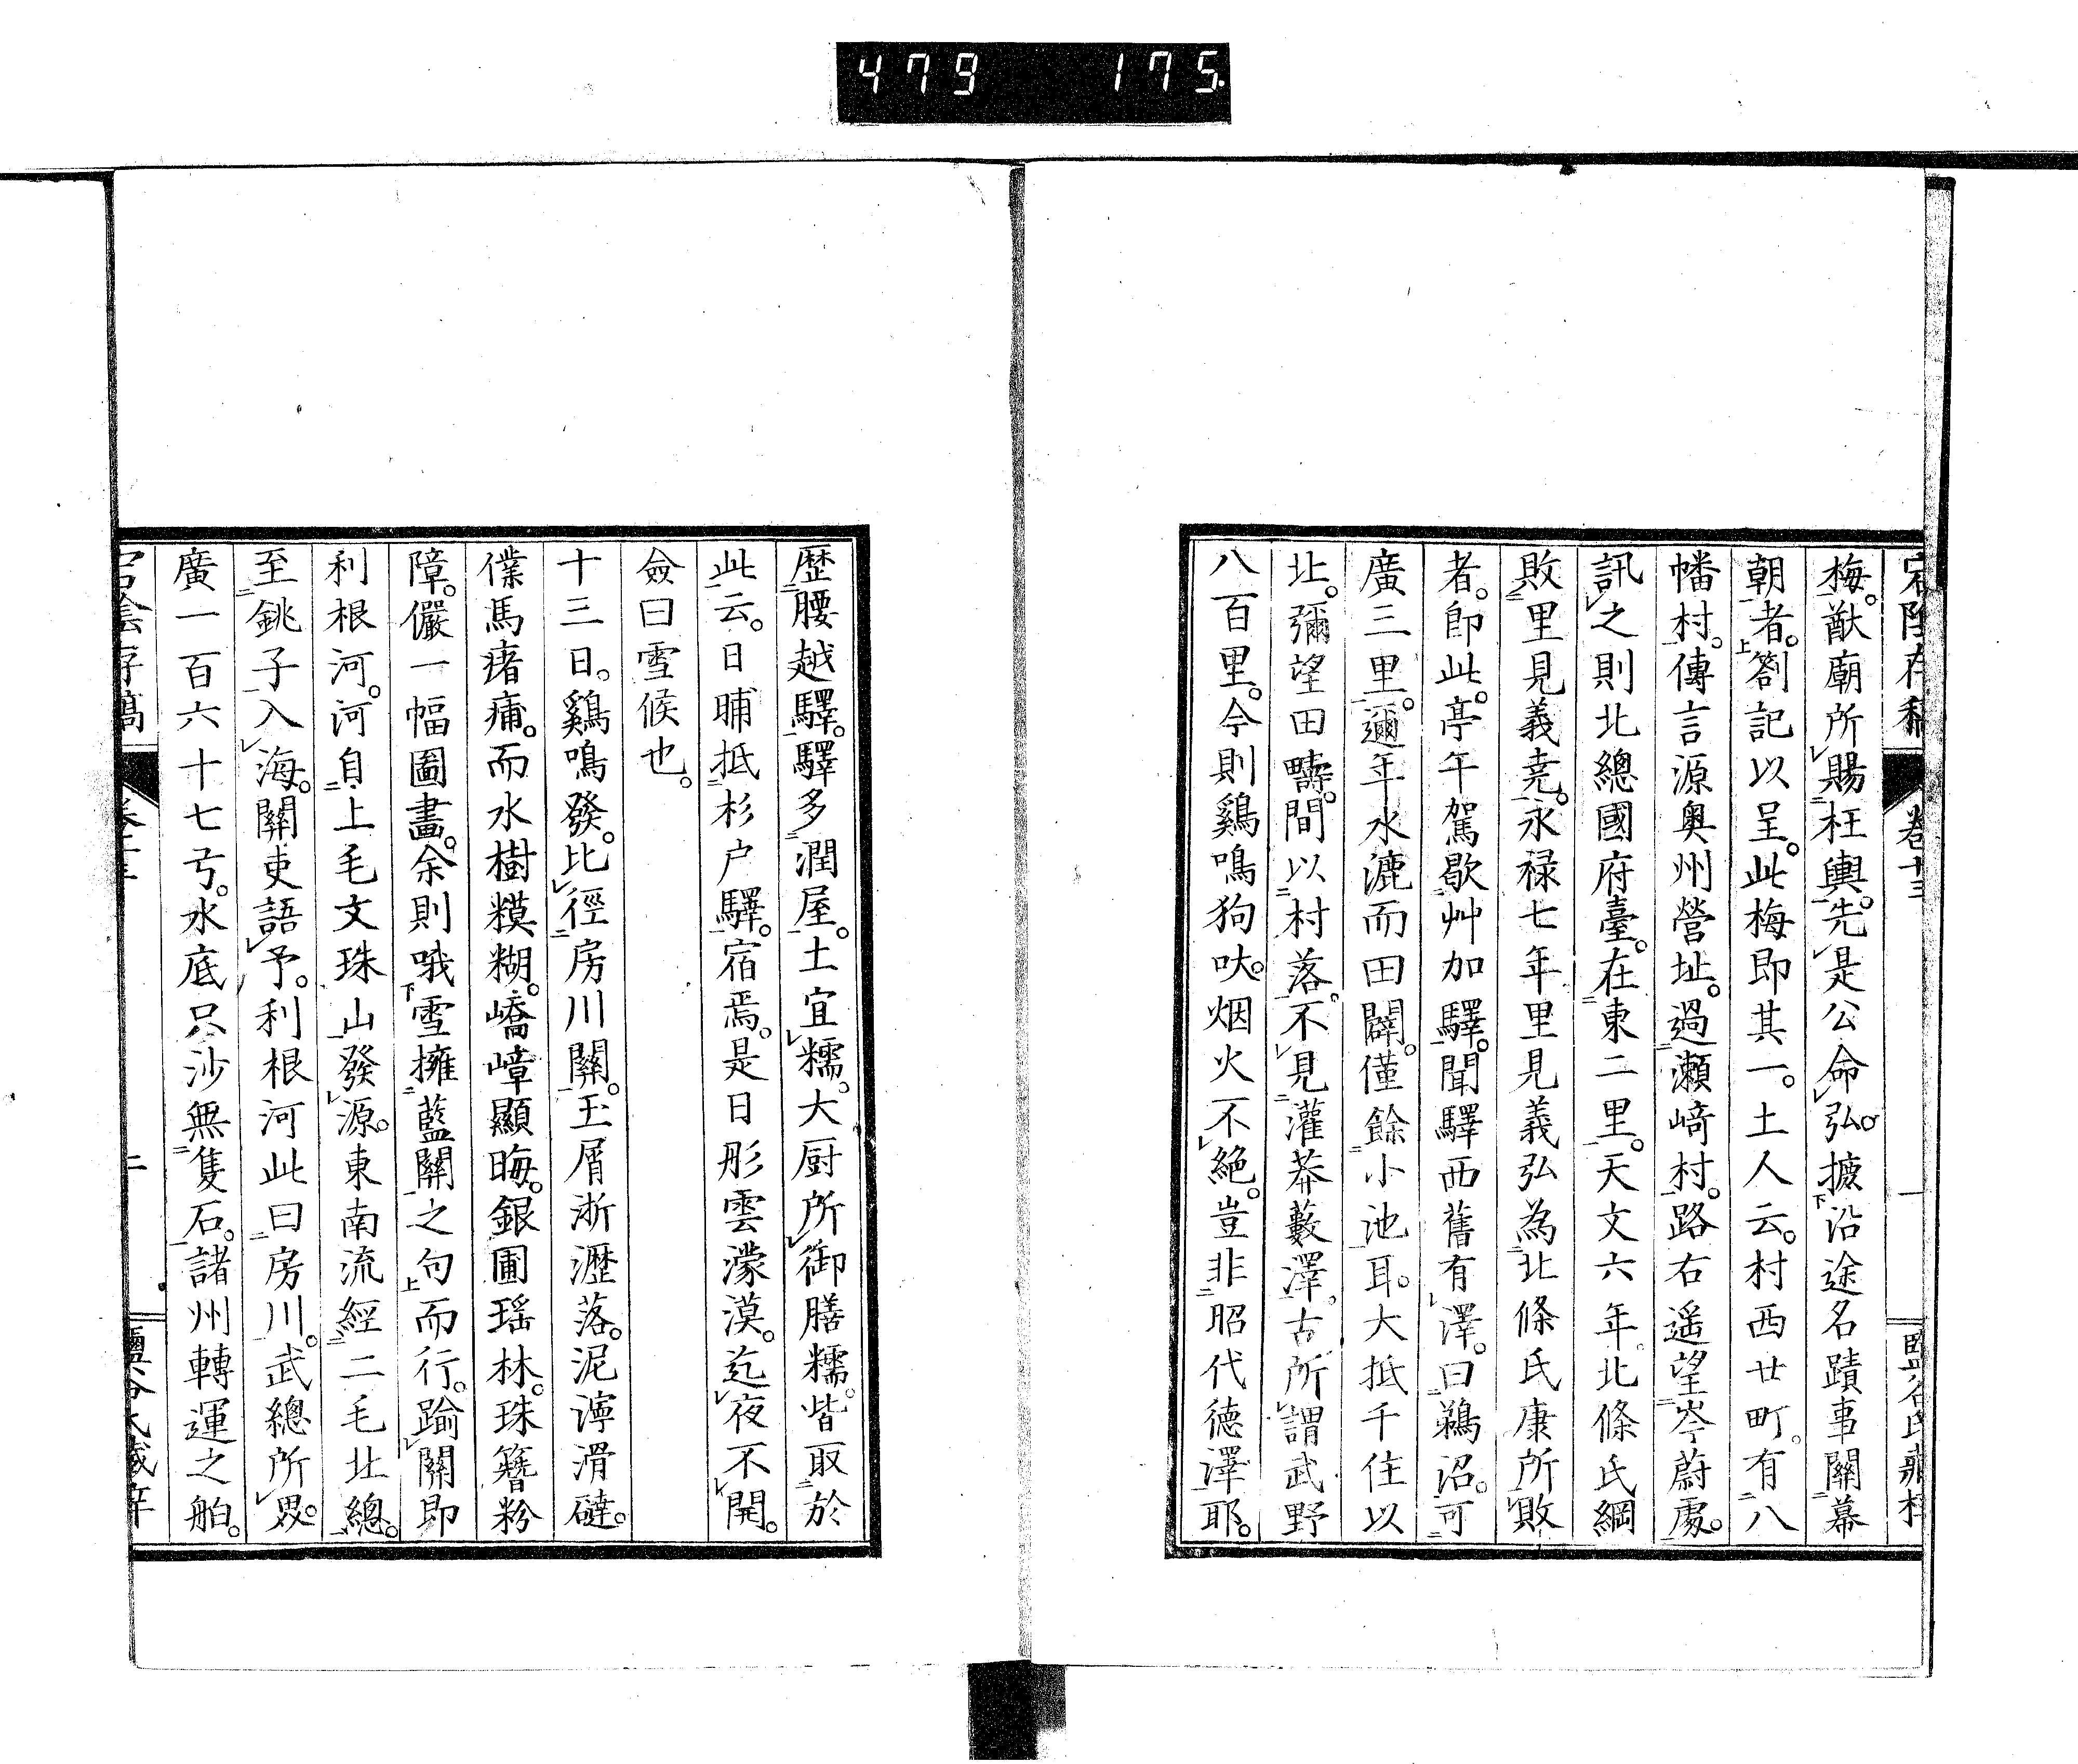 479 175
宕陰存稿 卷十三 一
梅。猷廟所賜枉輿。先是公命弘。摭沿途名蹟事關幕
朝者。劄記以呈。此梅即其一。土人云。村西廿町。有八
幡村。傳言源奥州營址。過瀬﨑村。路右遥望岑蔚處。
訊之則北總國府臺。在東二里。天文六年。北條氏綱
敗里見義尭。永禄七年里見義弘為北條氏康所敗
者。即此。亭午駕歇艸加驛。聞驛西舊有澤。曰鵜沼。可
廣三里。邇年水漉而田闢。僅餘小池耳。大抵千住以
北。彌望田疇。間以村落。不見灌莽藪澤。古所謂武野
八百里。今則鷄鳴狗吠。烟火不絶。豈非昭代徳澤耶。
歴腰越驛。驛多潤屋。土宜糯。大厨所御膳糯。皆取於
此云。日晡抵杉户驛。宿焉。是日彤雲濛漠。迄夜不開。
僉曰雪候也。
十三日。鷄鳴發。比徑房川關。玉屑淅瀝落。泥濘滑䃎。
僕馬瘏痡。而水樹糢糊。嶠嶂顯晦。銀圃瑶林。珠簪粉
障。儼一幅圖畫。余則哦雪擁藍關之句而行。踰關即
利根河。河自上毛文珠山發源。東南流經二毛北總。
至銚子入海。關吏語予。利根河此曰房川。武總所界。
廣一百六十七弓。水底只沙無隻石。諸州轉運之舶。
宕陰存稿 卷十三 二